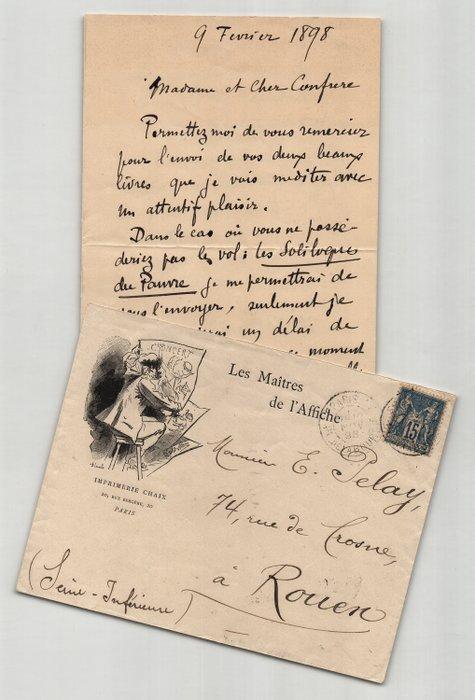 9 Fevrier 1898
Madame et Cher Confrere
Permettez moi de vous remercier
pour l'envoi de vos deux beaux
livres que je vais mediter avec
un attentif plaisir.
Dans le cas où vous ne possé-
deriez pas le vol: les Soliloques
du Pauvre je me permettrai de
vous l'envoyer, seulement je
un délai de
ce moment
Les Maîtres
de l'Affiche
CONCERT
IMPRIMERIE CHAIX
20, RUE BERGÈRE, 20
PARIS
PARIS
98
15
Monsieur E. Pelay,
74, rue de Crosne,
à Rouen
(Seine-Inférieure)